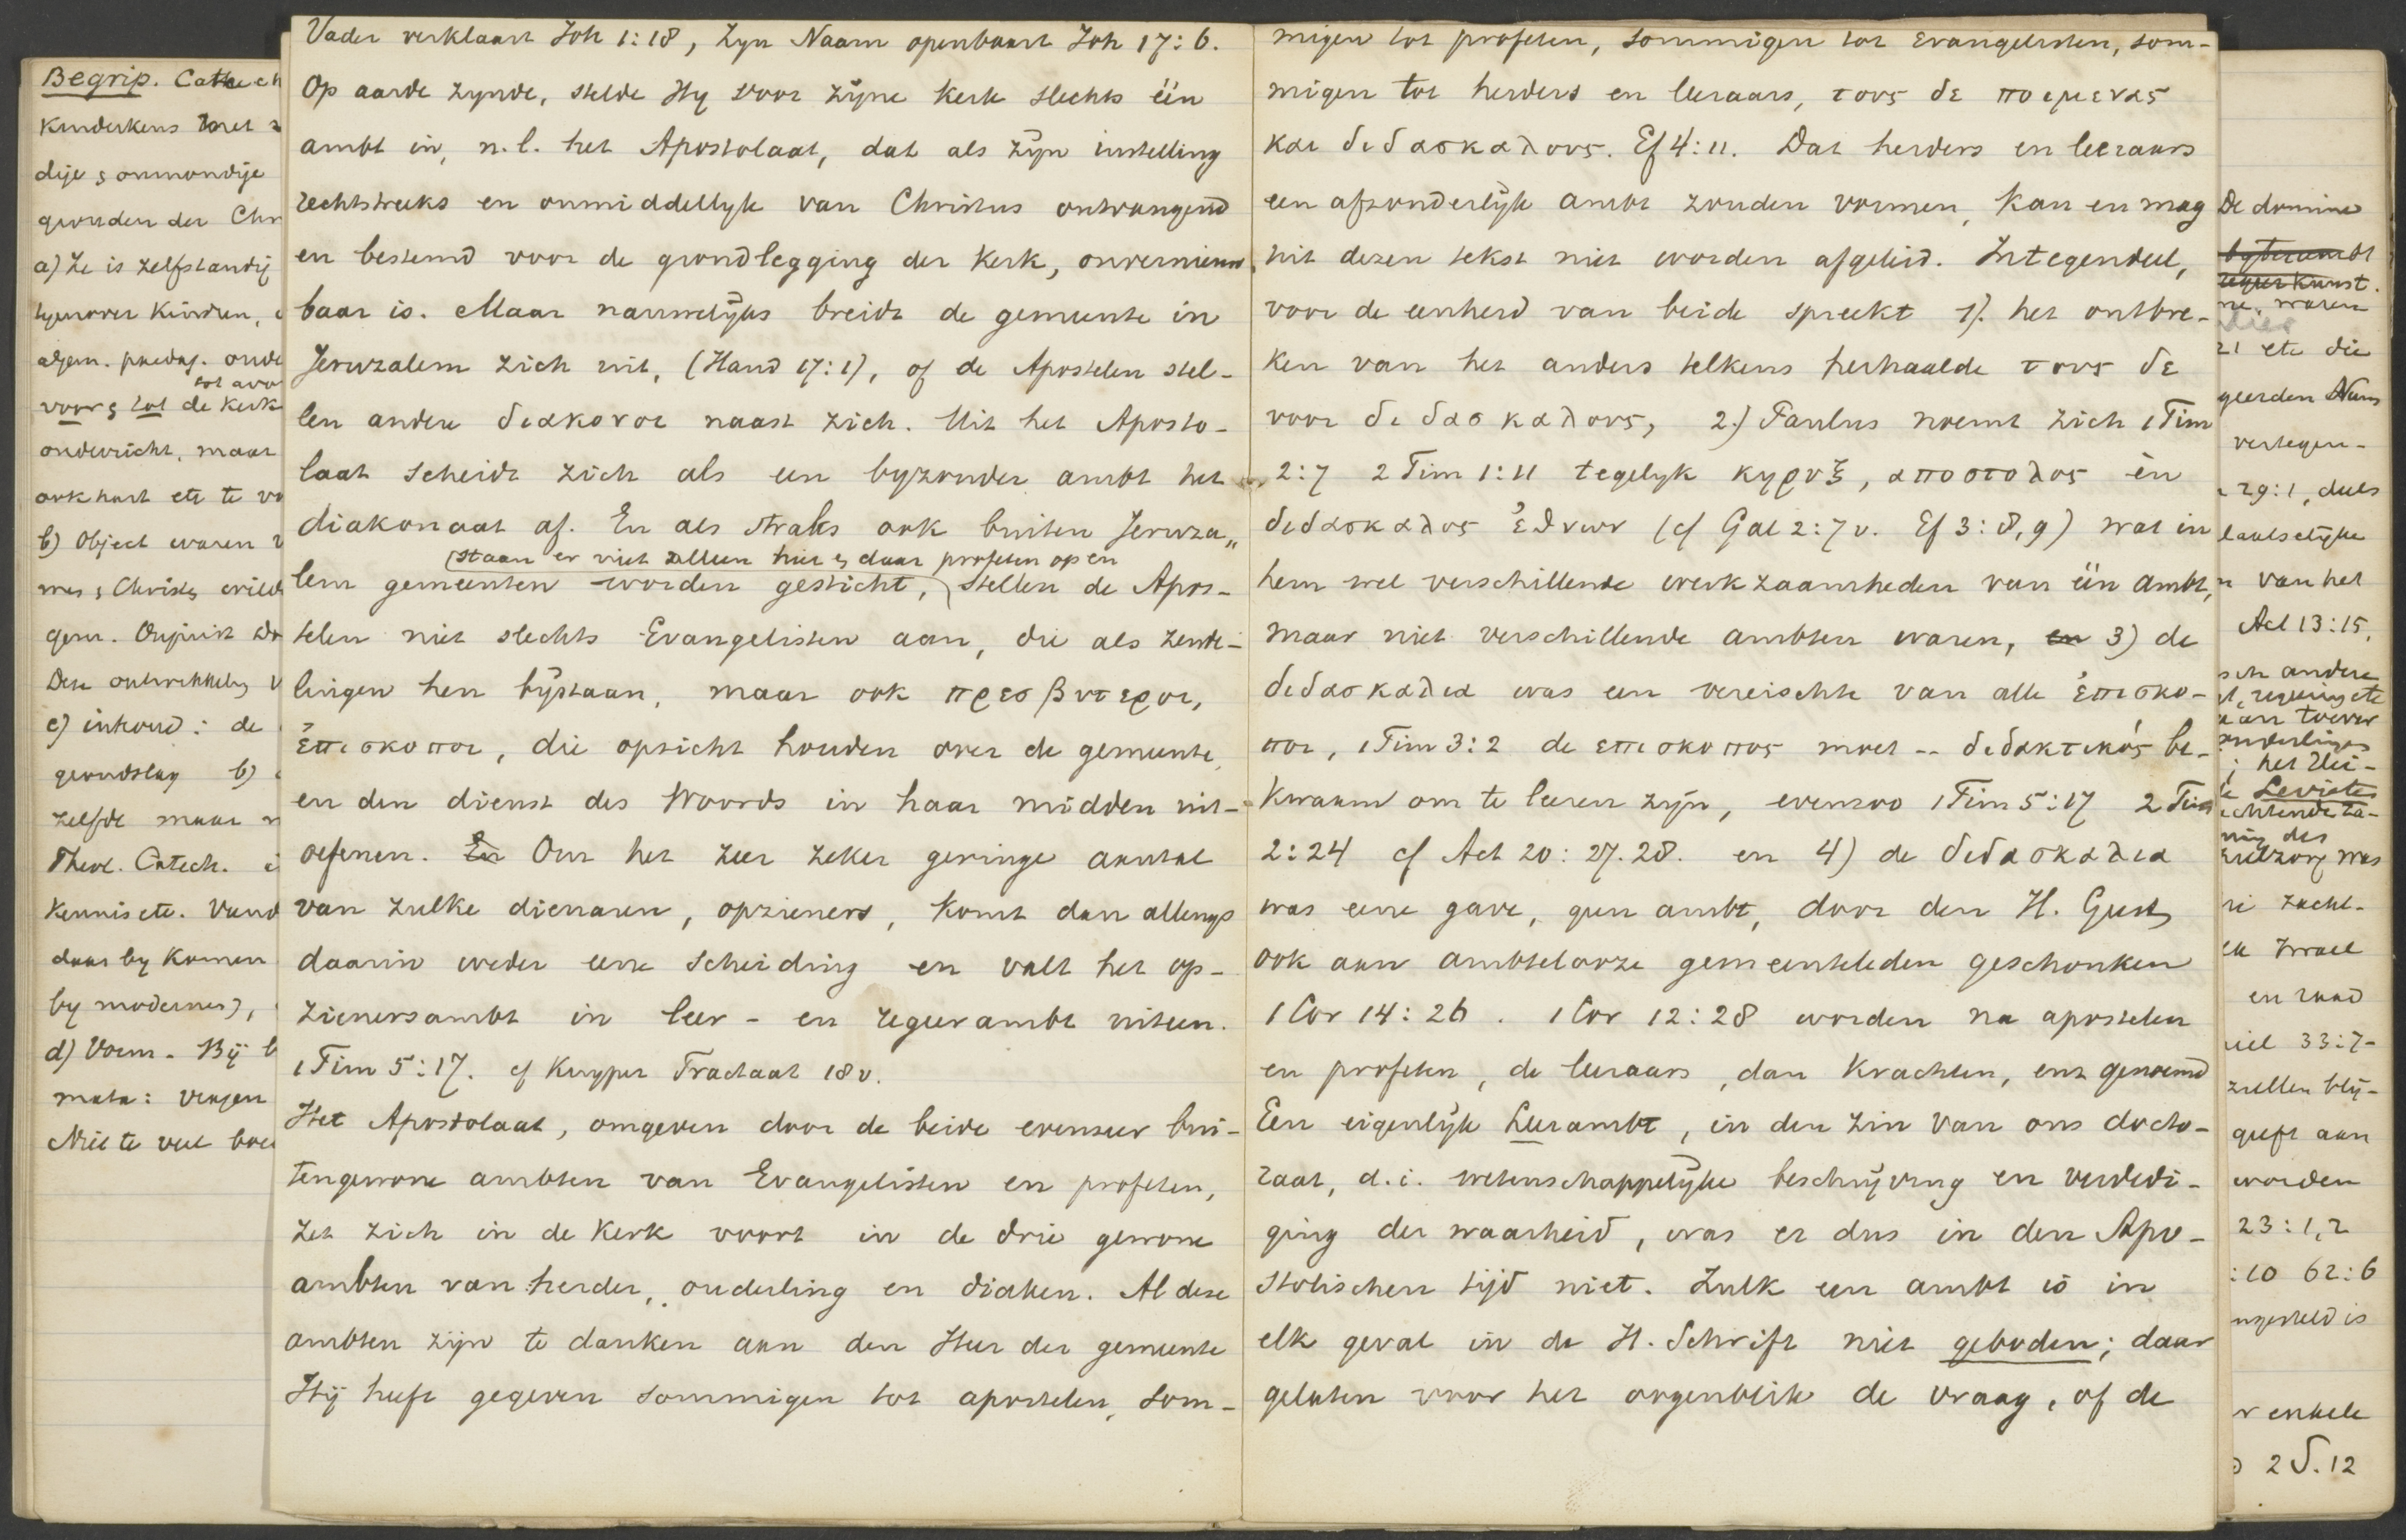 Begrip. Catech
Kinderkens
dije & onmondije
gronden der Chr
a) Ze is zelfstandij
tegenover Kinderen,
algem. paedag. onde
voor & tot de Kerk
onderricht, maar
ook hart etc te vo
b) Object waren
mes & Christ
gem.
Deze ontwikkeling
c) inhoud: de
grondslag b)
zelfde maar
Theol. Catech.
Kennis etc.
daar by Komen
by modernes),
d) Vorm. Bij
mata: vragen
Niet te veel
Vader verklaart Joh 1:18, Zyn Naam openbaart Joh 17:6.
Op aarde zynde, stelde Hy voor zijne Kerk slechts één
ambt in, n.l. het Apostolaat, dat als zijn instelling
rechtstreeks en onmiddellyk van Christus ontvangend
en bestemd voor de grondlegging der Kerk, onvernieuw
baar is. Maar nauwelijks breidt de gemeente in
Jeruzalem zich uit, (Hand 17:1), of de Apostelen stel-
len andere διακονοι naast zich. Uit het Aposto-
laat scheidt zich als een byzonder ambt het
diakonaat af. En als straks ook buiten Jeruza„
(staan er niet alleen hier & daar profeten op en
lem gemeenten worden gesticht, stellen de Apos-
telen niet slechts Evangelisten aan, die als zende-
lingen hen bijstaan, maar ook πρεσβυτεροι,
ἐπισκοποι, die opzicht houden over de gemeente,
en den dienst des Woords in haar midden uit-
oefenen. En Om het zeer zeker geringe aantal
van zulke dienaren, opzieners, Komt dan allengs
daarin weder eene scheiding en valt het op-
zienersambt in leer- en regeerambt uiteen.
1 Tim 5:17. cf Kuyper Tractaat 18v.
Het Apostolaat, omgeven door de beide evenzeer bui-
tengewone ambten van Evangelisten en profeten,
zet zich in de Kerk voort in de drie gewone
ambten van herder, ouderling en diaken. Al deze
ambten zijn te danken aan den Heer der gemeente
Hij heeft gegeven sommigen tot apostelen, som-
migen tot profeten, sommigen tot Evangelisten, som-
migen tot herders en leeraars, τους δε ποιμενας
και διδασκαλους. Ef 4:11. Dat herders en leeraars
een afzonderlijk ambt zouden vormen, kan en mag
uit dezen tekst niet worden afgeleid. Integendeel,
voor de eenheid van beide spreekt 1). het ontbre-
ken van het anders telkens herhaalde τους δε
voor διδασκαλους, 2.) Paulus noemt zich 1 Tim
2:7 2 Tim 1:11 tegelyk κηρυξ, αποστολος èn
διδασκαλος ἐθνων (cf Gal 2:7v. Ef 3:8,9) wat in
hem wel verschillende werkzaamheden van één ambt,
maar niet verschillende ambten waren, en 3) de
διδασκαλια was een vereischte van alle ἐπισκο-
ποι, 1 Tim 3:2 de επισκοπος moet -- διδακτικός be-
kwaam om te leeren zijn, evenzoo 1 Tim 5:17 2 Tim
2:24 cf Act 20:27.28. en 4) de διδασκαλια
was eene gave, geen ambt, door den H. Geest,
ook aan ambtelooze gemeenteleden geschonken
1 Cor 14:26. 1 Cor 12:28 worden na apostelen
en profeten, de leeraars, dan Krachten, enz genoemd
Een eigenlijk Leerambt, in den zin van ons docto-
raat, d.i. wetenschappelijke beschrijving en verdedi-
ging der waarheid, was er dus in den Apo-
stolischen tijd niet. Zulk een ambt is in
elk geval in de H. Schrift niet geboden; daar
gelaten voor het oogenblik de vraag, of de
De domine
waren
21 etc die
geerden Nam
vertegen-
29:1, deels
laatselijke
van het
Act 13:15,
andere
het
Levietes
des
zorg was
zacht-
Israel
en raad
33:7-
zullen blij-
geeft aan
worden
23:1,2
:10 62:6
ngesteld is
enkele
2 S. 12